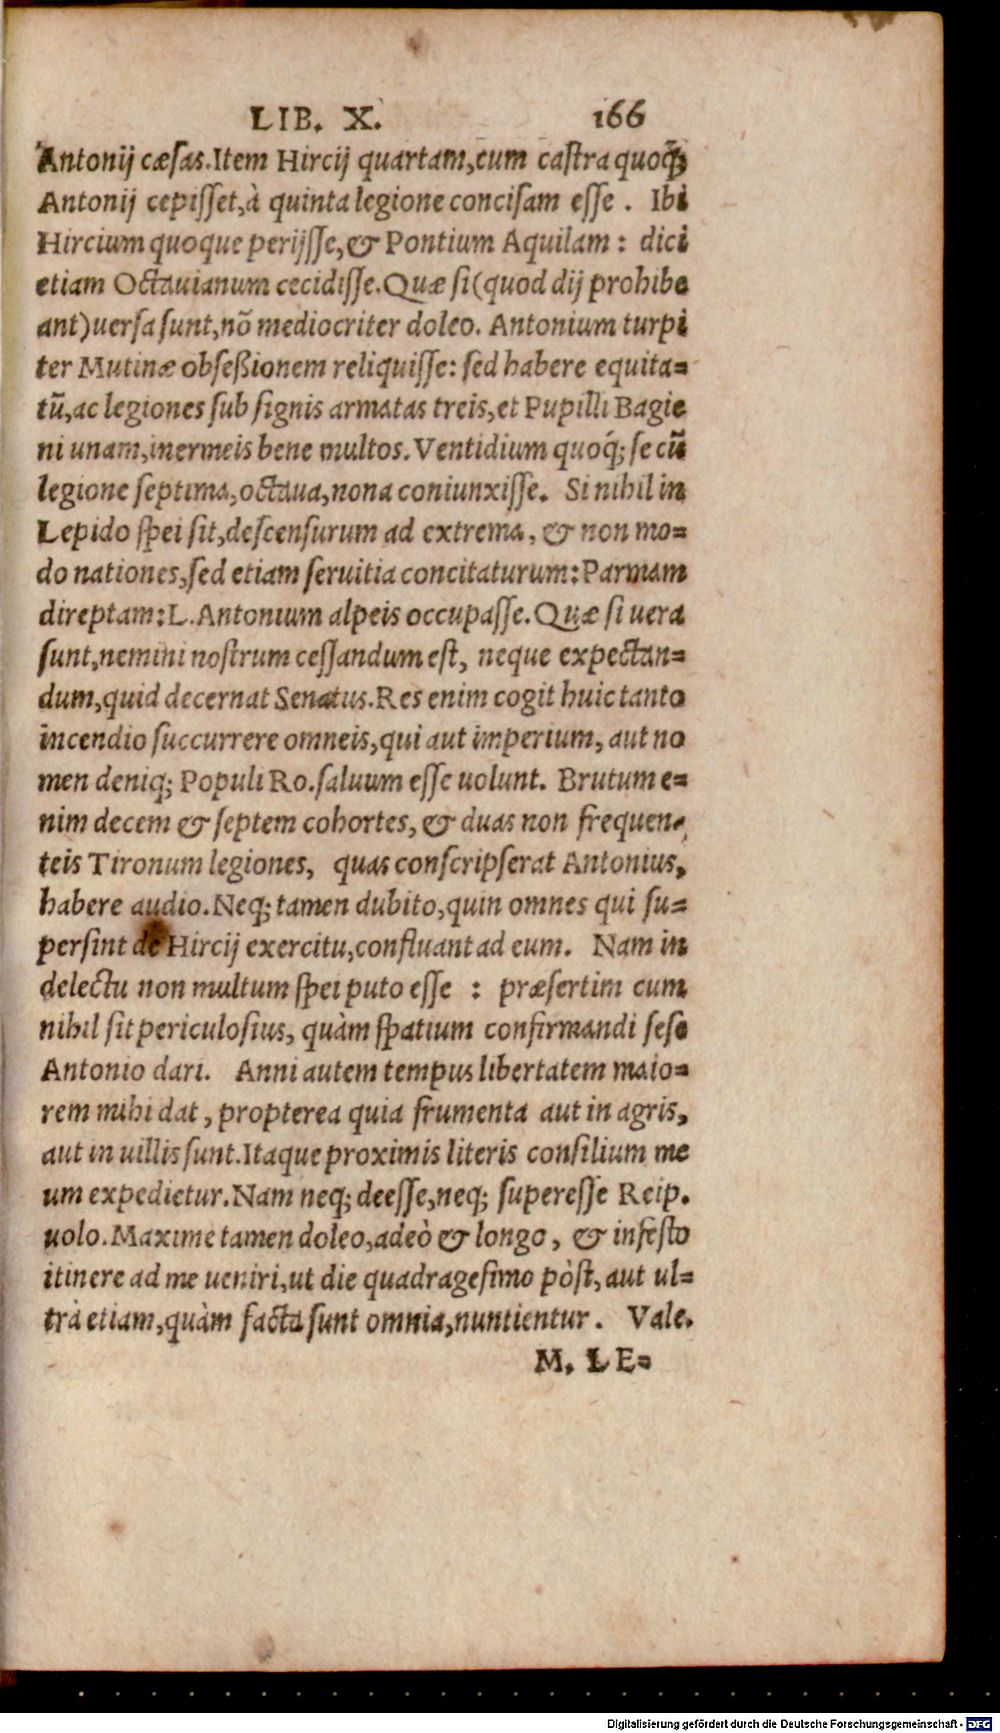 LIB. X. 166
Antonij cæsas. Item Hircij quartam, cum castra quoq;
Antonij cepisset, à quinta legione concisam esse. Ibi
Hircium quoque perijsse, & Pontium Aquilam: dici
etiam Octauianum cecidisse. Quæ si (quod dij prohibe
ant) uersa sunt, nō mediocriter doleo. Antonium turpi
ter Mutinæ obseßionem reliquisse: sed habere equita=
tū, ac legiones sub signis armatas treis, et Pupilli Bagie
ni unam, inermeis bene multos. Ventidium quoq́; se cū
legione septima, octaua, nona coniunxisse. Si nihil in
Lepido spei sit, descensurum ad extrema, & non mo=
do nationes, sed etiam seruitia concitaturum: Parmam
direptam: L. Antonium alpeis occupasse. Quæ si uera
sunt, nemini nostrum cessandum est, neque expectan=
dum, quid decernat Senatus. Res enim cogit huic tanto
incendio succurrere omneis, qui aut imperium, aut no
men deniq; Populi Ro. saluum esse uolunt. Brutum e=
nim decem & septem cohortes, & duas non frequen=
teis Tironum legiones, quas conscripserat Antonius,
habere audio. Neq; tamen dubito, quin omnes qui su=
persint de Hircij exercitu, confluant ad eum. Nam in
delectu non multum spei puto esse : præsertim cum
nihil sit periculosius, quàm spatium confirmandi sese
Antonio dari. Anni autem tempus libertatem maio=
rem mihi dat, propterea quia frumenta aut in agris,
aut in uillis sunt. Itaque proximis literis consilium me
um expedietur. Nam neq; deesse, neq; superesse Reip.
uolo. Maxime tamen doleo, adeò & longo, & infesto
itinere ad me ueniri, ut die quadragesimo pòst, aut ul=
trà etiam, quàm facta sunt omnia, nuntientur. Vale.
M. LE=
Digitalisierung gefördert durch die Deutsche Forschungsgemeinschaft - DFG